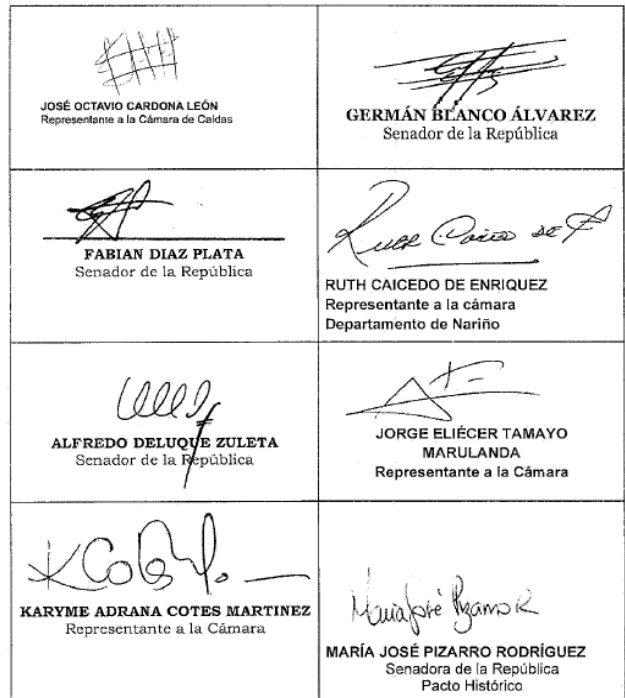 JOSÉ OCTAVIO CARDONA LEÓN
Representante a la Cámara de Caldas
GERMÁN BLANCO ÁLVAREZ
Senador de la República
FABIAN DIAZ PLATA
Senador de la República
Ruth Caicedo de E
RUTH CAICEDO DE ENRIQUEZ
Representante a la cámara
Departamento de Nariño
ALFREDO DELUQUE ZULETA
Senador de la República
JORGE ELIÉCER TAMAYO
MARULANDA
Representante a la Cámara
KARYME ADRANA COTES MARTINEZ
Representante a la Cámara
María José Pizarro R
MARÍA JOSÉ PIZARRO RODRÍGUEZ
Senadora de la República
Pacto Histórico